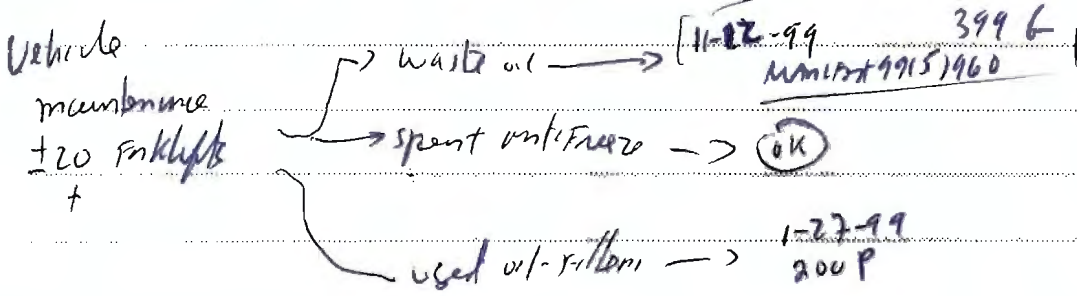 Vehicle
maintenance
±20 Forklifts
+
→ waste oil → [11-12-99 399 G
→ spent antifreeze → OK
used oil-filters → 1-27-99
200 P